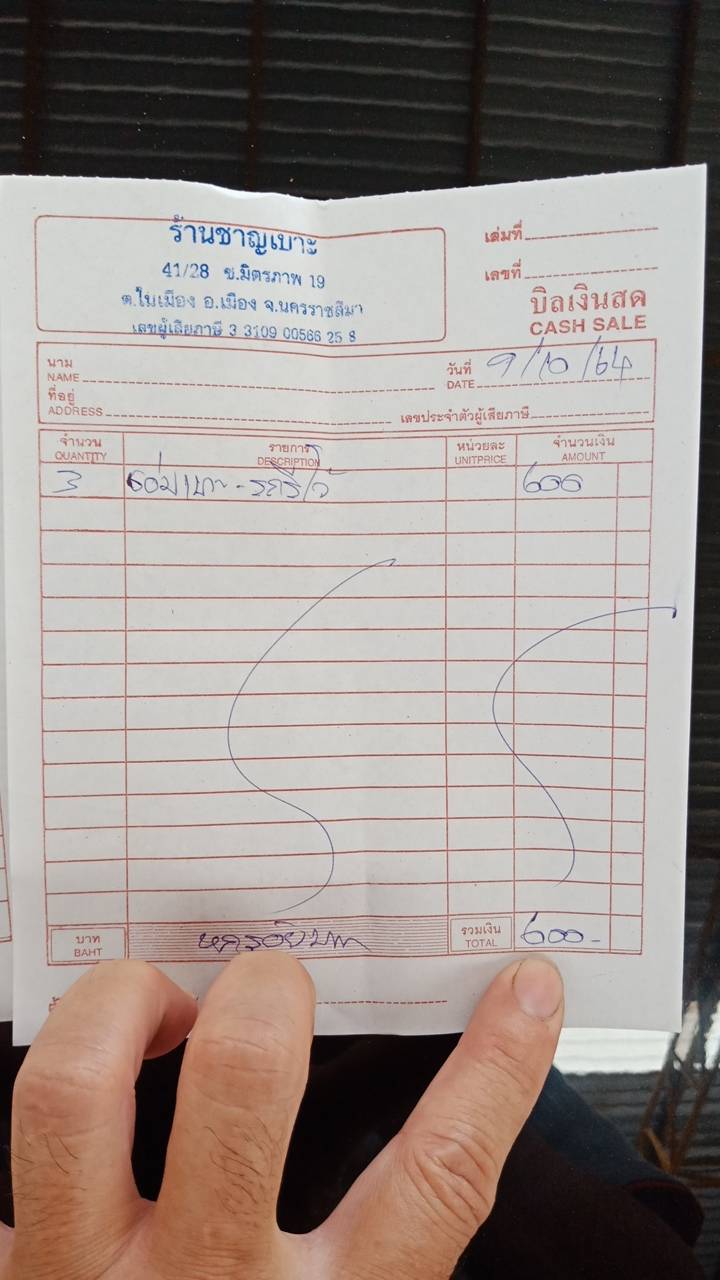 ร้านชาญเบาะ
41/28 ซ.มิตรภาพ 19
ต.ในเมือง อ.เมือง จ.นครราชสีมา
เลขผู้เสียภาษี 3 3109 00566 25 8
เล่มที่
เลขที่
บิลเงินสด
CASH SALE
นาม
NAME
วันที่ 9/10/64
DATE
ที่อยู่
ADDRESS
เลขประจำตัวผู้เสียภาษี
จำนวน รายการ หน่วยละ จำนวนเงิน
QUANTITY DESCRIPTION UNITPRICE AMOUNT
3 ซ่อมเบาะ - 600
บาท หกร้อยบาท รวมเงิน 600-
BAHT TOTAL